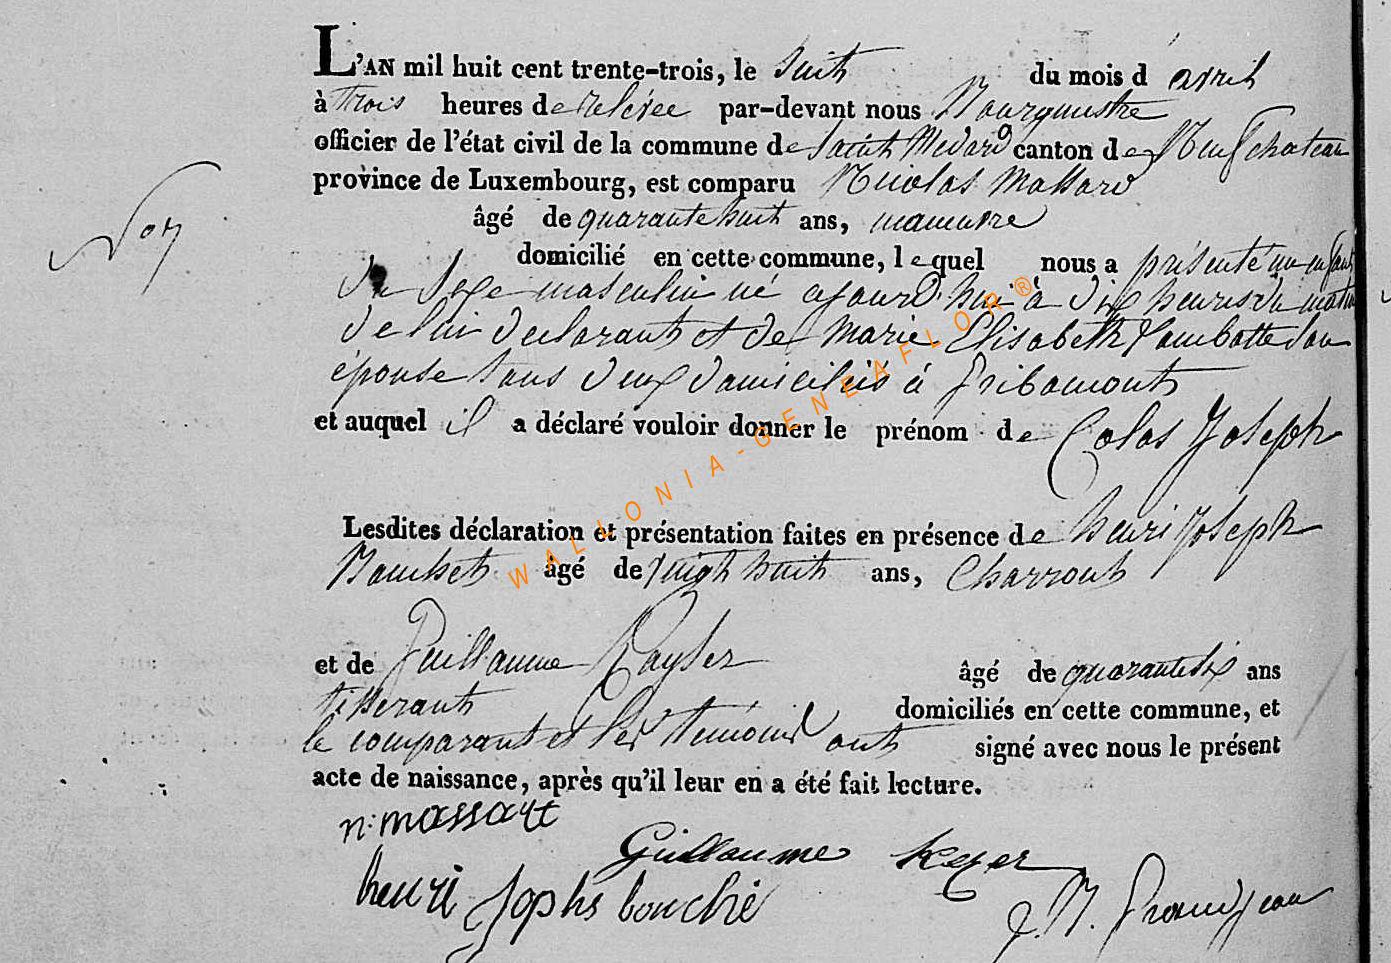 L'AN mil huit cent trente-trois, le huit du mois d avril
à trois heures de relevée par-devant nous Bourgmestre
officier de l'état civil de la commune de Saint Medard canton de Neufchateau
province de Luxembourg, est comparu Nicolas Massard
âgé de quarante huit ans, manoeuvre
domicilié en cette commune, lequel nous a présenté un enfant
du sexe masculin né ajourd'hui à dix heures du matin
de lui declarant et de Marie Elisabeth Lambotte son
épouse tous deux domiciliés à Gribomont
et auquel il a déclaré vouloir donner le prénom de Colas Joseph
Lesdites déclaration et présentation faites en présence de henri Joseph
âgé de vingt huit ans, Charron
et de Guillaume Kayser âgé de quarante six ans
tisserant domiciliés en cette commune, et
le comparant et les témoins ont signé avec nous le présent
acte de naissance, après qu'il leur en a été fait lecture.
n: massart
Guillaume Keyer
henri Jophs bouché
J. N. Grandjean
WALLONIA-GENEAFLOR®